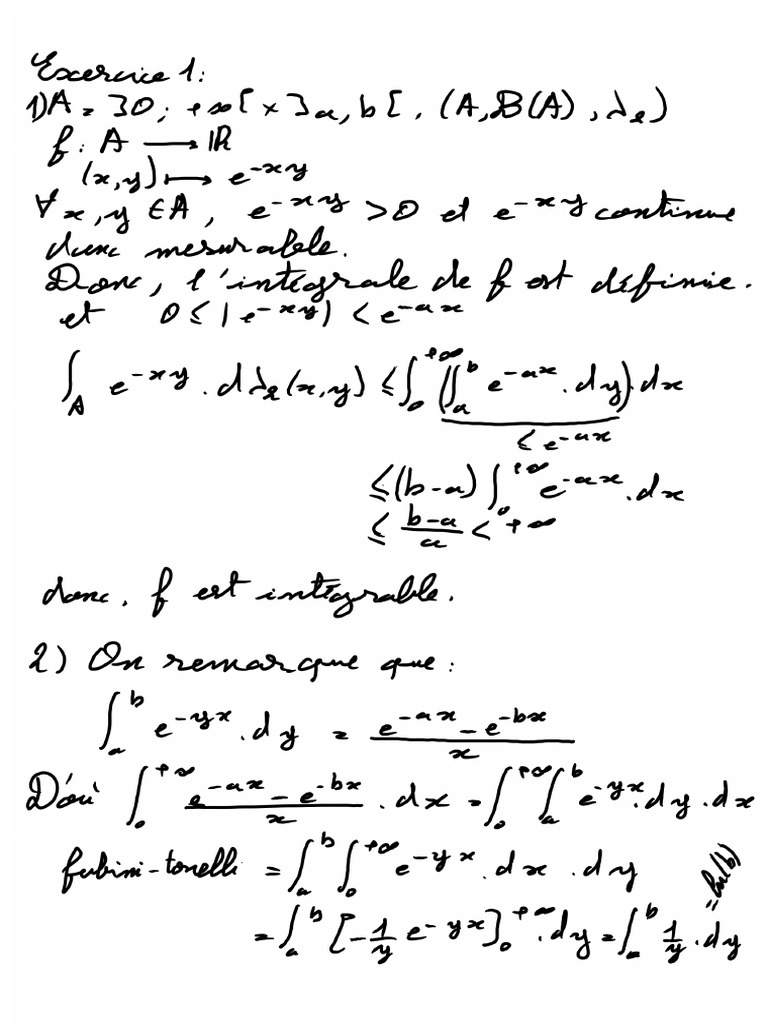 Exercice 1:
1) A = ]0; +∞[ × ]a, b[ . (A, B(A), λ₂)
f: A → ℝ
(x,y) ↦ e^{-xy}
∀ x,y ∈ A, e^{-xy} > 0 et e^{-xy} continue
donc mesurable.
Donc, l'intégrale de f est définie.
et 0 ≤ |e^{-xy}| < e^{-ax}
∫_A e^{-xy} . dλ₂(x,y) ≤ ∫_0^{+∞} (∫_a^b e^{-ax} . dy) . dx
≤ e^{-ax}
≤ (b-a) ∫_0^{+∞} e^{-ax} . dx
≤ \frac{b-a}{a} < +∞
donc, f est intégrable.
2) On remarque que :
∫_a^b e^{-yx} . dy = \frac{e^{-ax} - e^{-bx}}{x}
D'où ∫_0^{+∞} \frac{e^{-ax} - e^{-bx}}{x} . dx = ∫_0^{+∞} ∫_a^b e^{-yx} . dy . dx
fubini-tonelli = ∫_a^b ∫_0^{+∞} e^{-yx} . dx . dy
= ∫_a^b [-\frac{1}{y} e^{-yx}]_0^{+∞} . dy = ∫_a^b \frac{1}{y} . dy